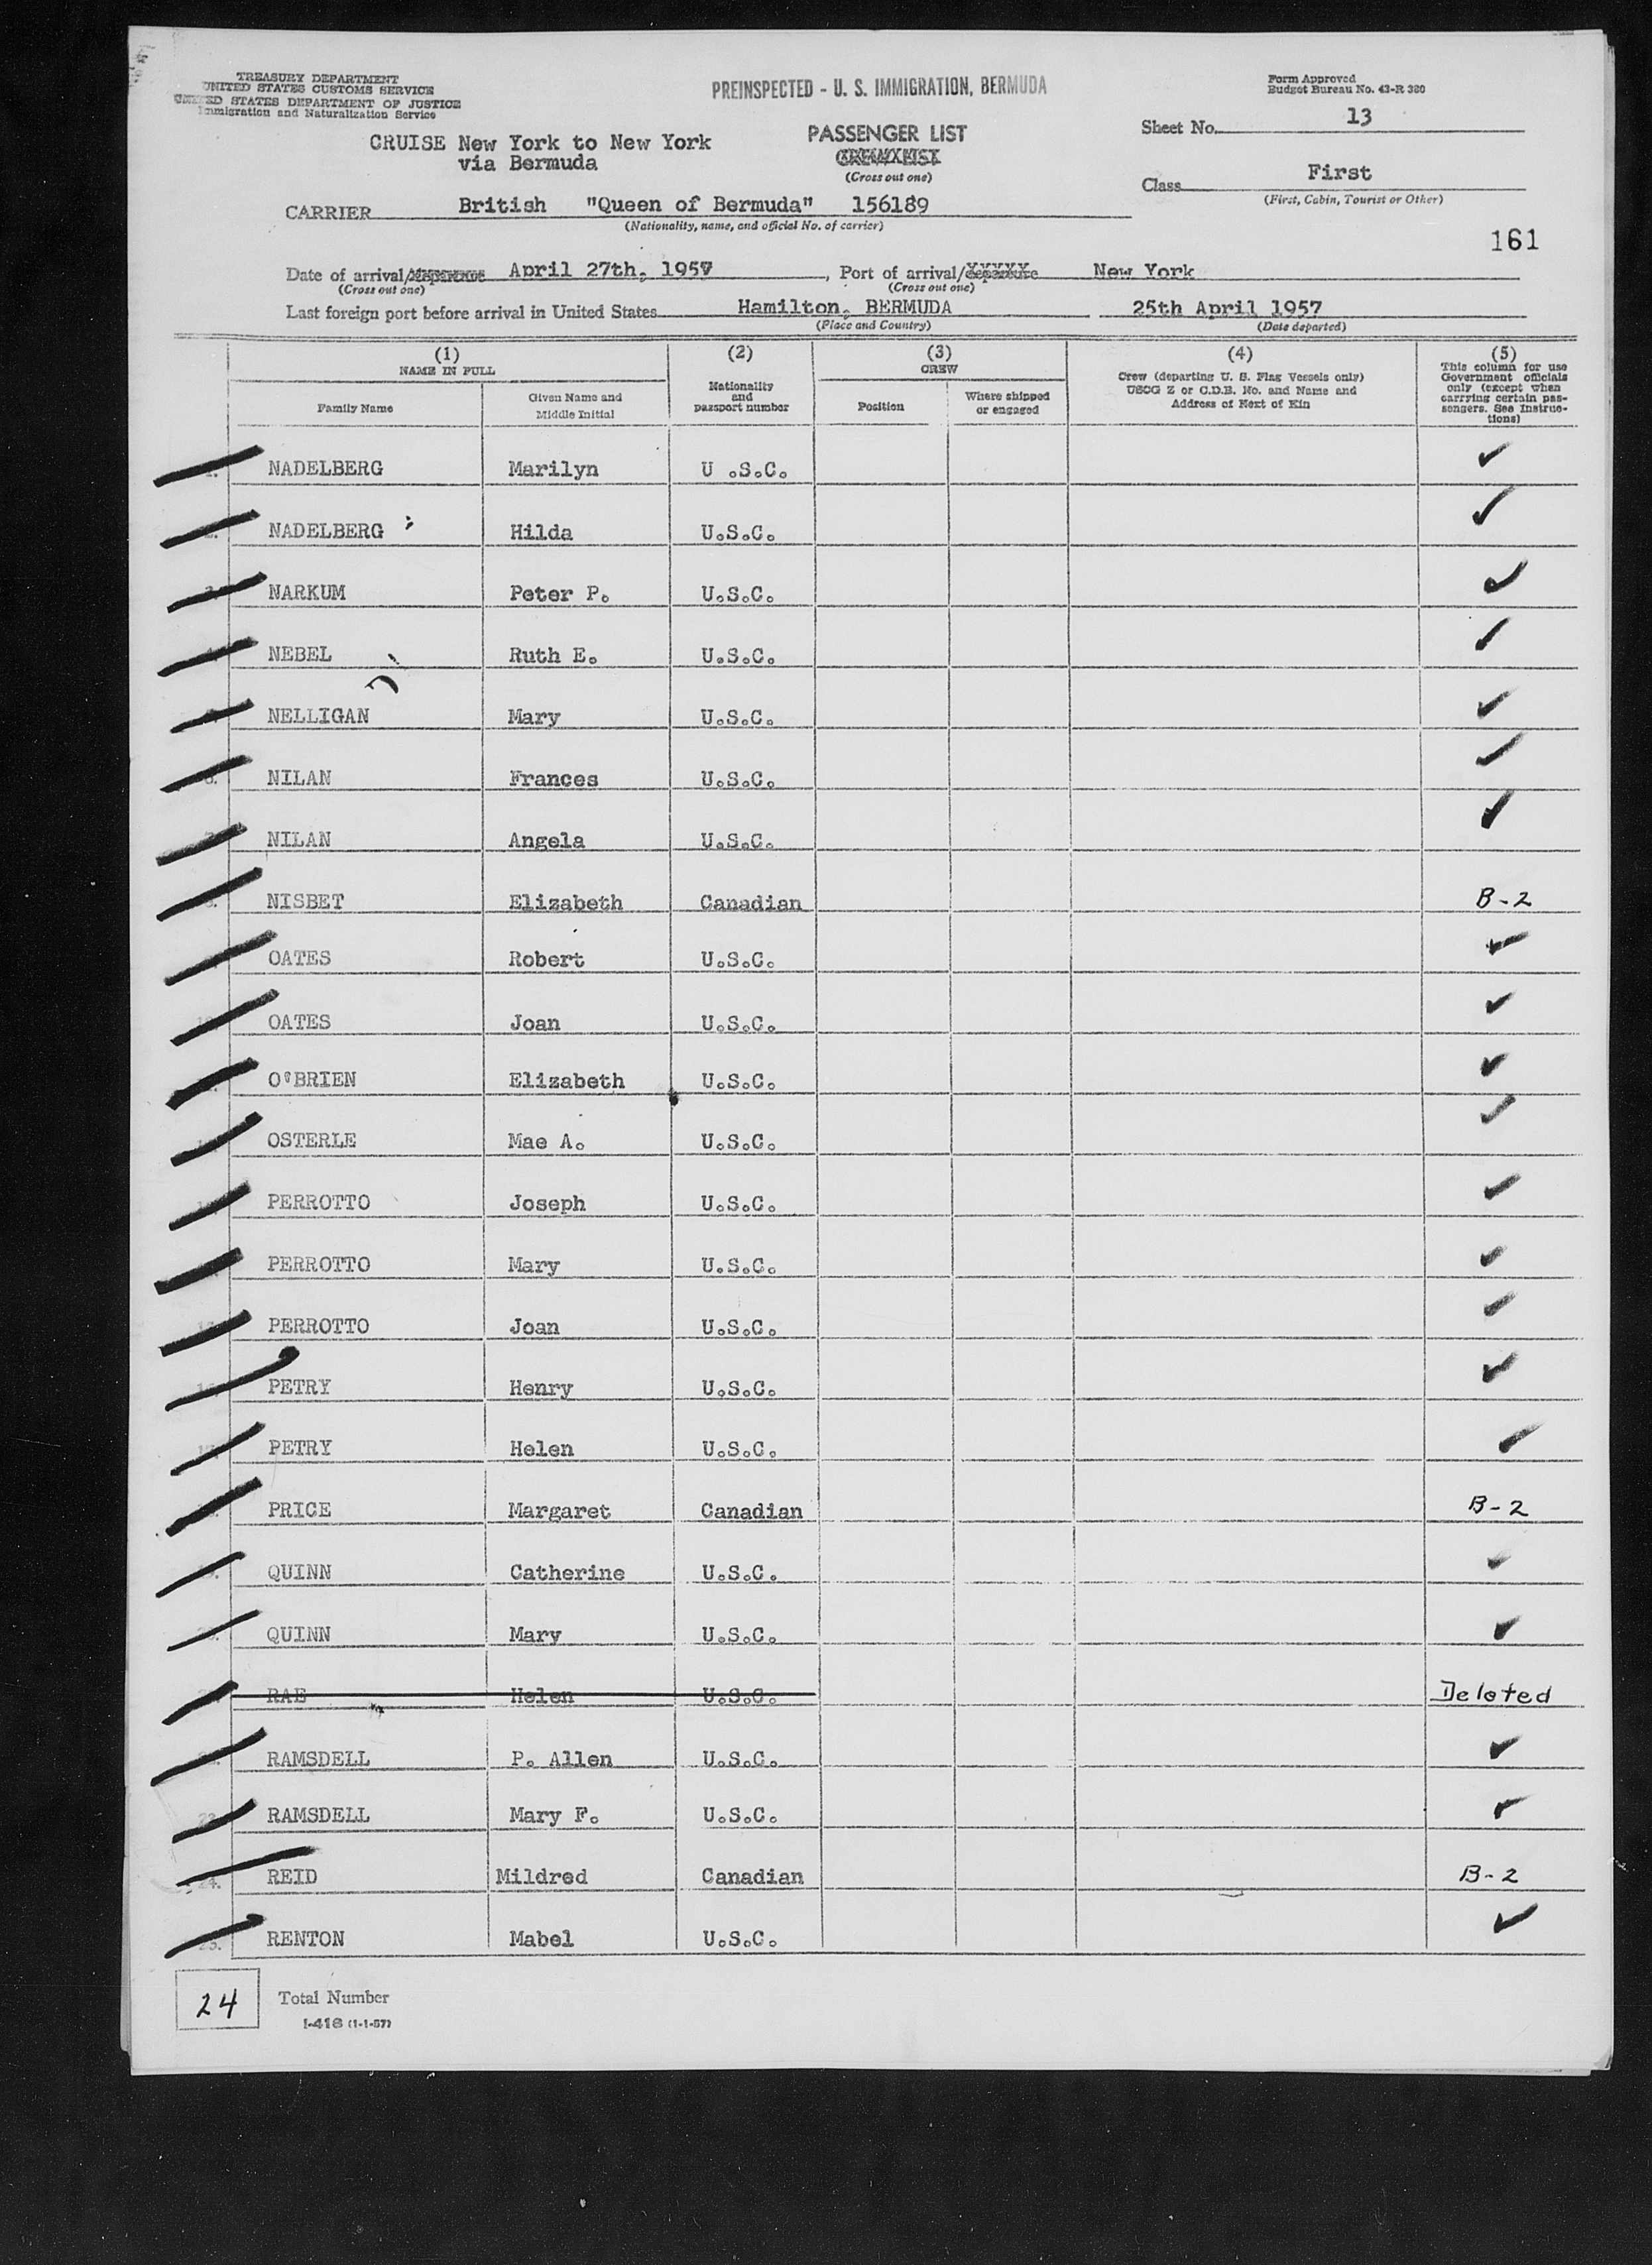 TREASURY DEPARTMENT
UNITED STATES CUSTOMS SERVICE
UNITED STATES DEPARTMENT OF JUSTICE
Immigration and Naturalization Service
PREINSPECTED - U. S. IMMIGRATION, BERMUDA
Form Approved
Budget Bureau No. 43-R 380
Sheet No. 13
CRUISE New York to New York
via Bermuda
PASSENGER LIST
CREW LIST
(Cross out one)
Class First
(First, Cabin, Tourist or Other)
CARRIER British "Queen of Bermuda" 156189
(Nationality, name, and official No. of carrier)
161
Date of arrival/departure April 27th, 1957, Port of arrival/departure New York
(Cross out one) (Cross out one)
Last foreign port before arrival in United States Hamilton, BERMUDA 25th April 1957
(Place and Country) (Date departed)
(1) NAME IN FULL
Family Name
Given Name and Middle Initial
(2)
Nationality and passport number
(3) CREW
Position
Where shipped or engaged
(4)
Crew (departing U. S. Flag Vessels only)
USCG Z or C.D.B. No. and Name and
Address of Next of Kin
(5)
This column for use
Government officials
only (except when
carrying certain pas-
sengers. See Instruc-
tions)
NADELBERG Marilyn U .S.C. ✓
NADELBERG Hilda U.S.C. ✓
NARKUM Peter P. U.S.C. ✓
NEBEL Ruth E. U.S.C. ✓
NELLIGAN Mary U.S.C. ✓
NILAN Frances U.S.C. ✓
NILAN Angela U.S.C. ✓
NISBET Elizabeth Canadian B-2
OATES Robert U.S.C. ✓
OATES Joan U.S.C. ✓
O'BRIEN Elizabeth U.S.C. ✓
OSTERLE Mae A. U.S.C. ✓
PERROTTO Joseph U.S.C. ✓
PERROTTO Mary U.S.C. ✓
PERROTTO Joan U.S.C. ✓
PETRY Henry U.S.C. ✓
17. PETRY Helen U.S.C. ✓
PRICE Margaret Canadian B-2
QUINN Catherine U.S.C. ✓
QUINN Mary U.S.C. ✓
RAE Helen U.S.C. Deleted
RAMSDELL P. Allen U.S.C. ✓
23. RAMSDELL Mary F. U.S.C. ✓
24. REID Mildred Canadian B-2
25. RENTON Mabel U.S.C. ✓
24 Total Number
I-418 (1-1-57)